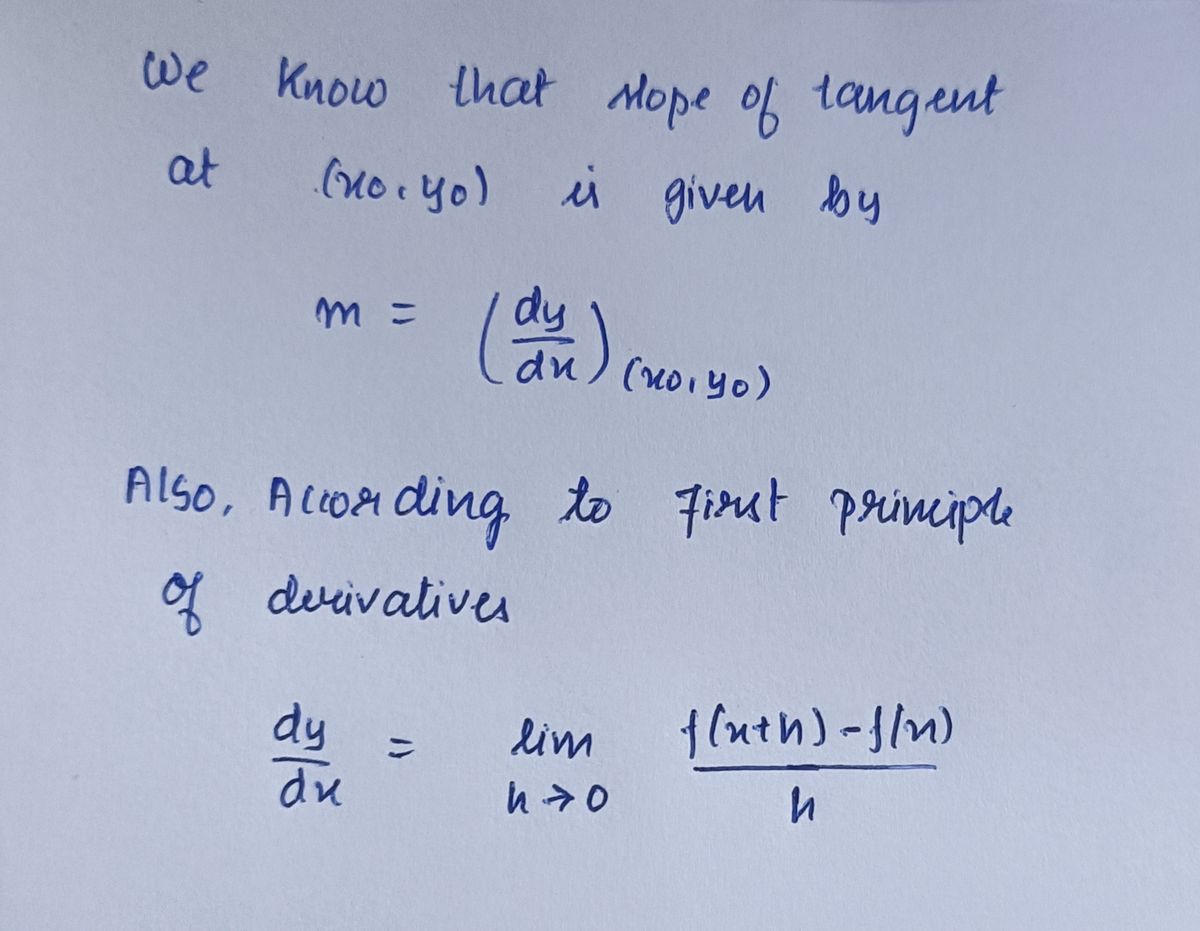 We Know that slope of tangent
at (x0, y0) is given by
m = (dy/dx)(x0, y0)
Also, According to First principle
of derivatives
dy/dx = lim h→0 f(x+h) - f(x) / h